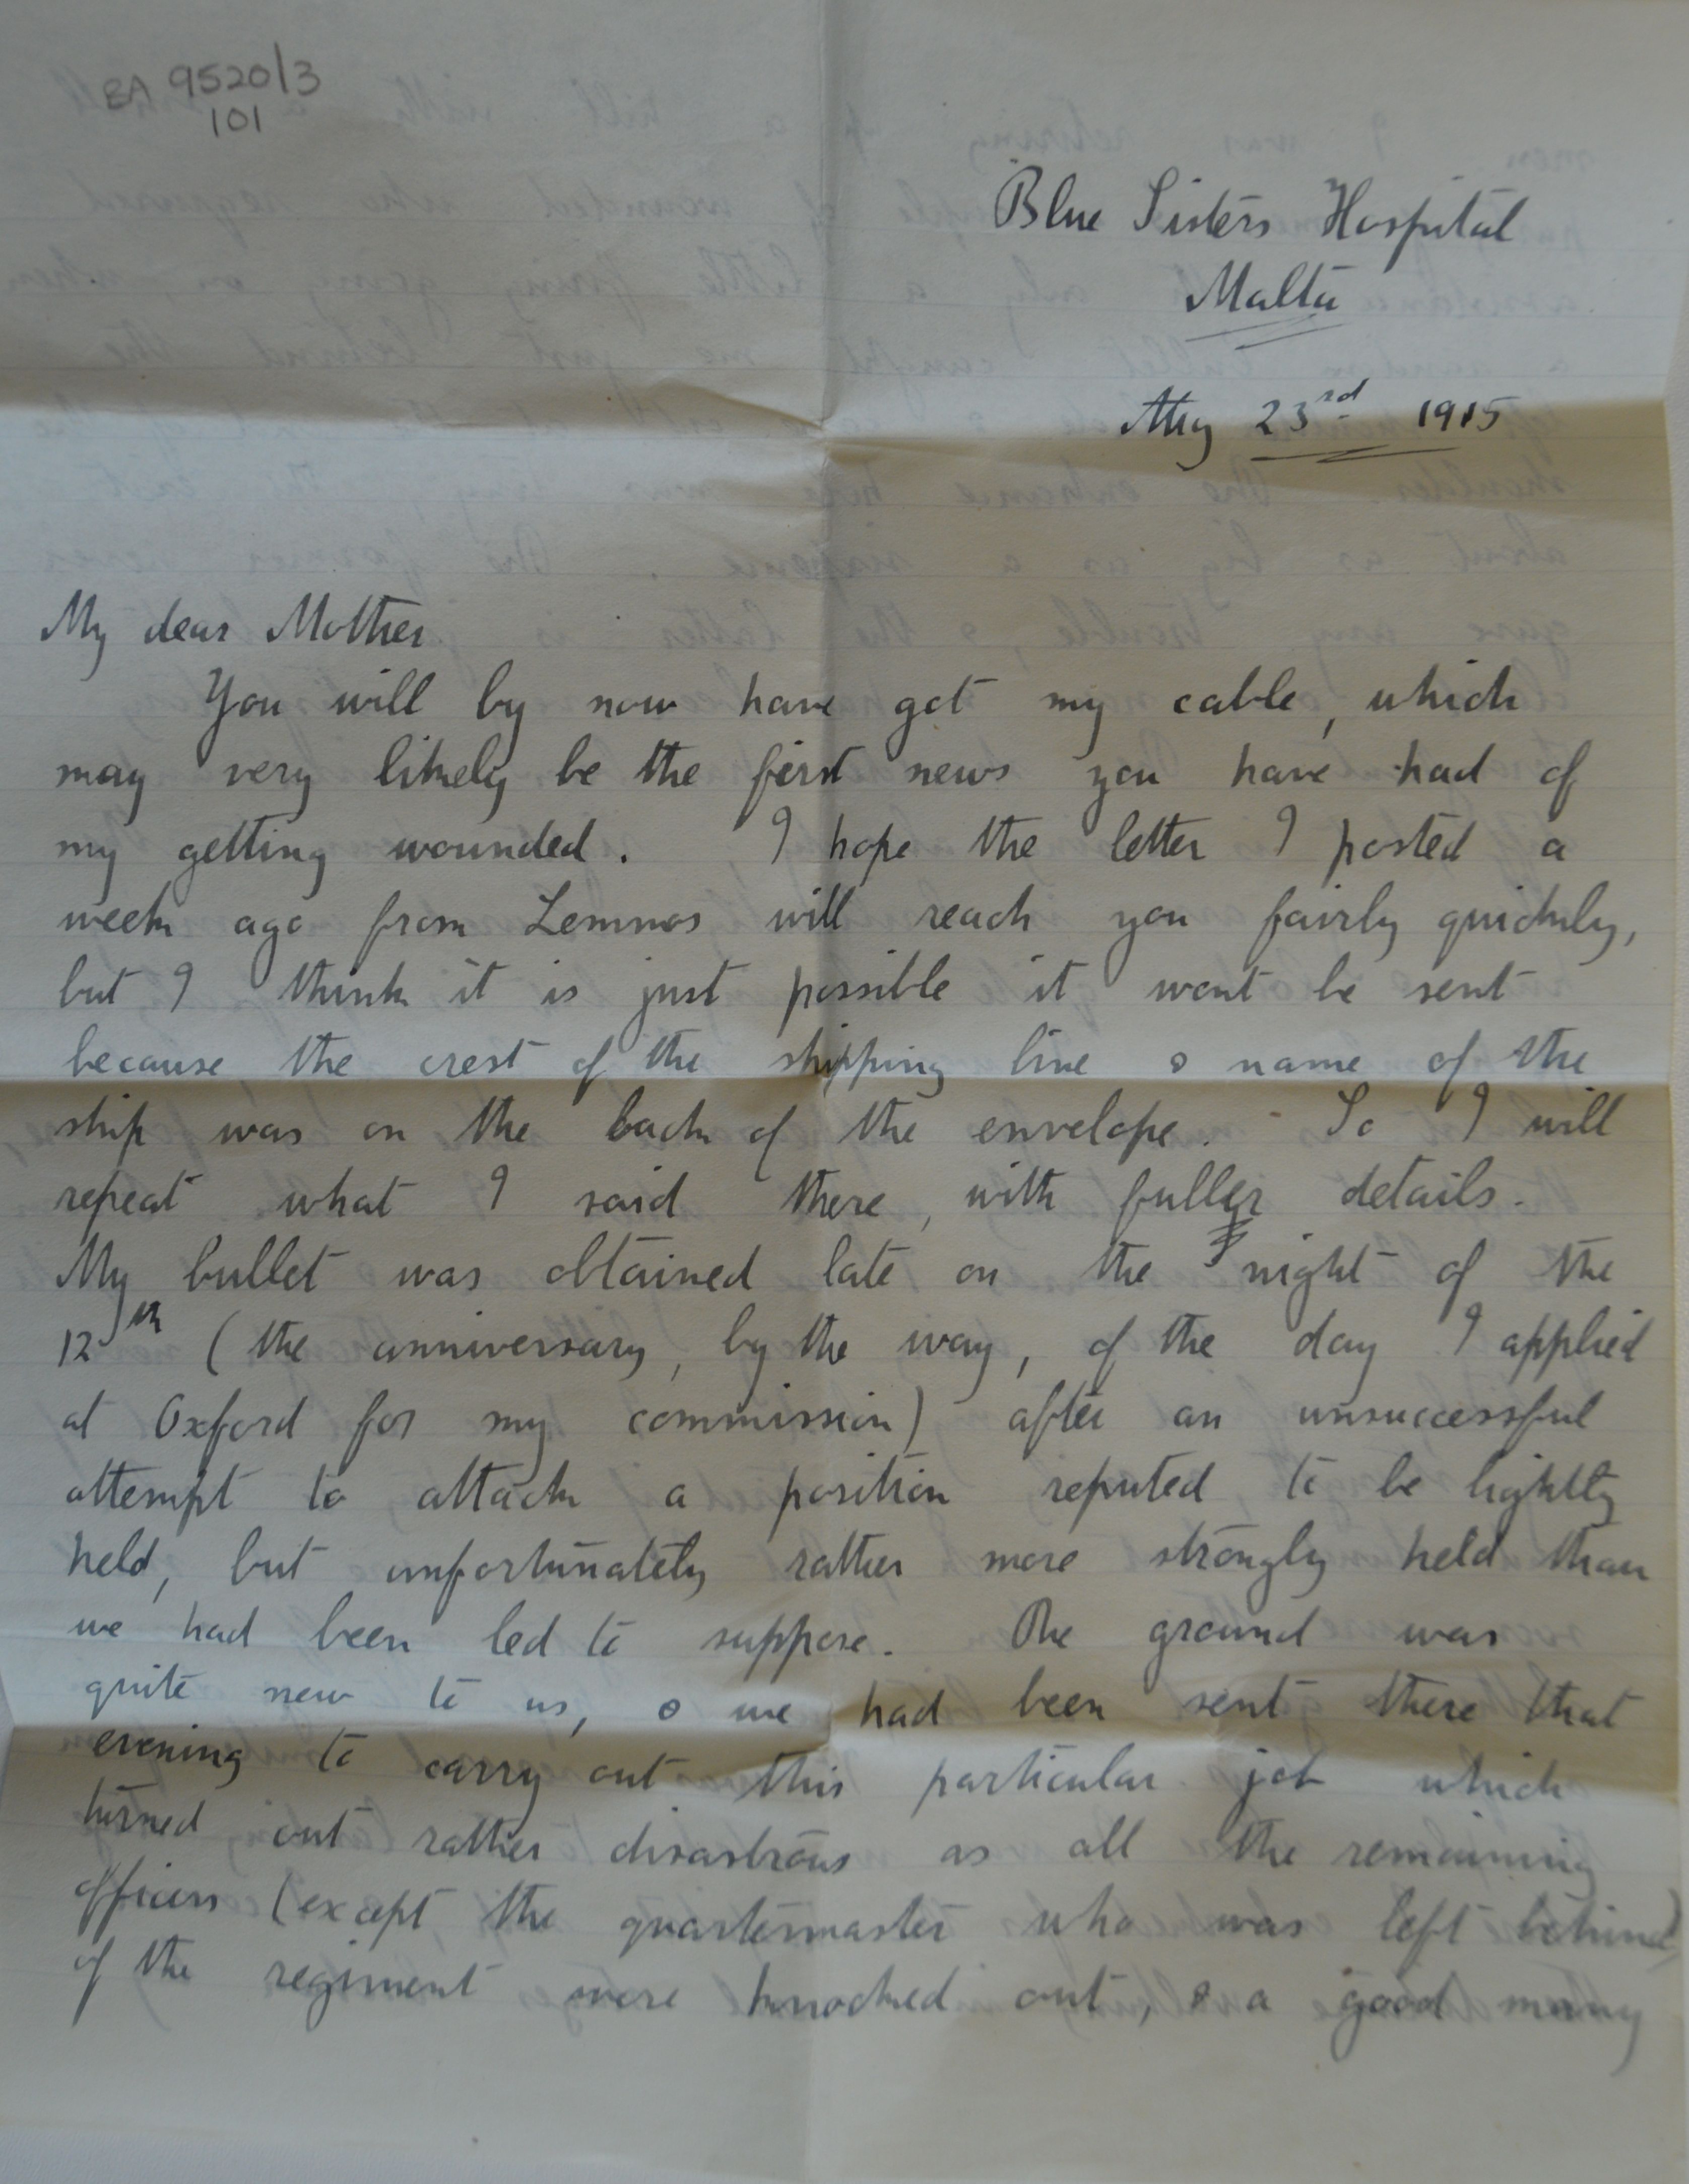 EA 9520/3
101
Blue Sisters Hospital
Malta
Aug 23rd 1915
My dear Mother
You will by now have got my cable, which
may very likely be the first news you have had of
my getting wounded. I hope the letter I posted a
week ago from Lemnos will reach you fairly quickly,
but I think it is just possible it wont be sent
because the crest of the shipping line & name of the
ship was on the back of the envelope. So I will
repeat what I said there, with fuller details.
My bullet was obtained late on the night of the
12th (the anniversary, by the way, of the day I applied
at Oxford for my commission) after an unsuccessful
attempt to attack a position reputed to be lightly
held, but unfortunately rather more strongly held than
we had been led to suppose. The ground was
quite new to us, & we had been sent there that
evening to carry out this particular job which
turned out rather disastrous as all the remaining
officers (except the quartermaster who was left behind)
of the regiment were knocked out, & a good many